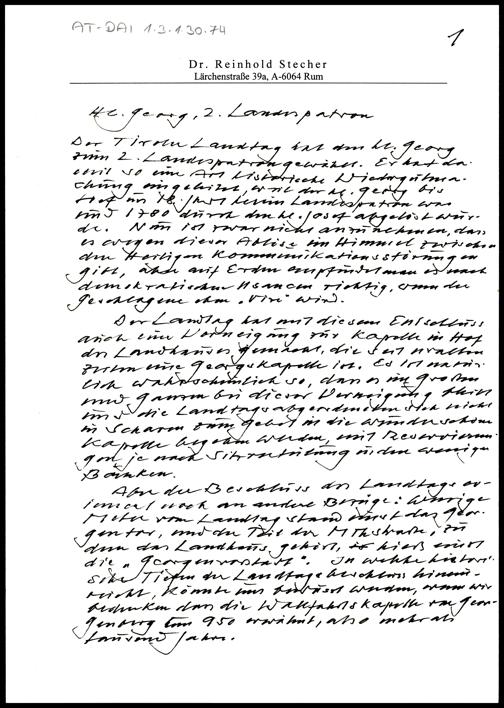 AT-DAI 1.3.1.30.74
1
Dr. Reinhold Stecher
Lärchenstraße 39a, A-6064 Rum
Hl. Georg, 2. Landespatron
Der Tiroler Landtag hat den hl. Georg
zum 2. Landespatron gewählt. Er hat da-
mit so eine Art historische Wiedergutma-
chung eingeleitet, weil der hl. Georg bis
tief ins 18. Jahrhundert Landespatron war
und 1780 durch den hl. Josef abgelöst wur-
de. Nun ist zwar nicht anzunehmen, dass
es wegen dieser Ablöse im Himmel zwischen
den Heiligen Kommunikationsstörungen
gibt, aber auf Erden empfindet man es nach
demokratischen Usancen richtig, wenn der
Geschlagene ein "Vize" wird.
Der Landtag hat mit diesem Entschluss
auch eine Verneigung zur Kapelle im Hof
des Landhauses gemacht, die seit uralten
Zeiten eine Georgskapelle ist. Es ist natür-
lich wahrscheinlich so, dass es im Großen
und Ganzen bei dieser Verneigung bleibt
und die Landtagsabgeordneten sich nicht
in Scharen zum Gebet in die wunderschöne
Kapelle begeben werden, mit Reservierun-
gen je nach Sitzverteilung in den wenigen
Bänken.
Aber der Beschluss des Landtags er-
innert noch an andere Bezüge: Wenige
Meter vom Landtag stand einst das Geor-
gentor, und der Teil der Straße, zu
dem das Landhaus gehört, hieß einst
die "Georgenvorstadt". In welche histori-
sche Tiefen der Landtagsbeschluss hinun-
reicht, könnte uns bewusst werden, wenn wir
bedenken dass die Wallfahrtskapelle von Geor-
genberg um 950 erwähnt, also mehr als
tausend Jahre.